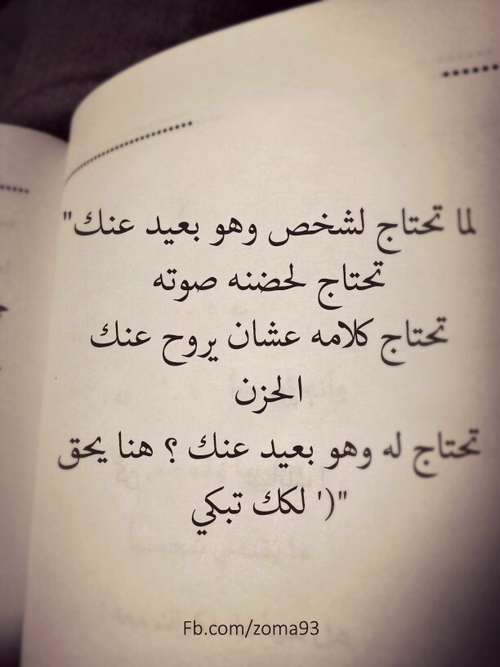 لما تحتاج لشخص وهو بعيد عنك"
تحتاج لحضنه صوته
تحتاج كلامه عشان يروح عنك
الحزن
تحتاج له وهو بعيد عنك ؟ هنا يحق
لكك تبكي ')"
Fb.com/zoma93